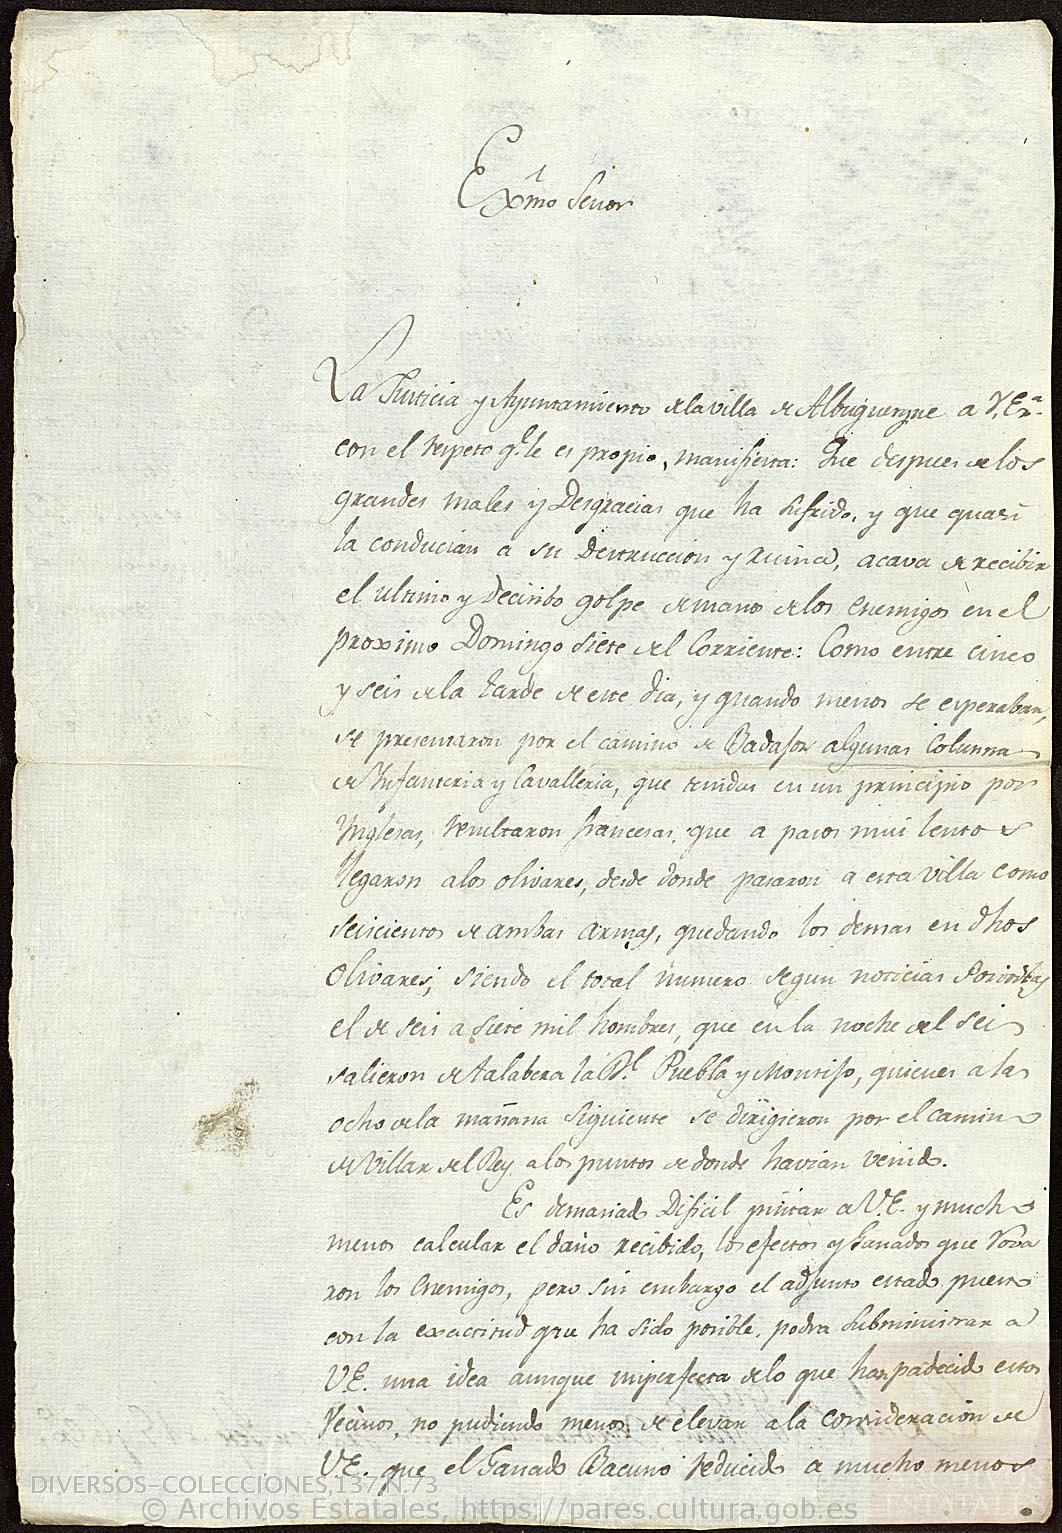 Exmo Señor
La Justicia y Ayuntamiento de la villa de Alburquerque a V. Exa.
con el respeto qe. le es propio, manifiesta: Que despues de los
grandes males y Desgracias que ha sufrido, y que quasi
la conducian a su Destruccion y ruina, acava de recibir
el ultimo y Decisibo golpe de mano de los enemigos en el
proximo Domingo siete del Corriente: Como entre cinco
y seis de la tarde de este dia, y quando menos se esperaban,
se presentaron por el camino de Badajoz algunas Columnas
de Infanteria y Cavalleria, que tenidas en un principio por
Ynglesas, resultaron francesas, que a pasos mui lentos
llegaron a los olivares, desde donde pasaron a esta villa como
seiscientos de ambas armas, quedando los demas en dhos
Olivares, siendo el total numero segun noticias Positibas
el de seis a siete mil hombres, que en la noche del seis
salieron de Talabera la Rl. Puebla y Montijo, quienes a las
ocho de la mañana siguiente se dirigieron por el camino
de Villar del Rey a los puntos de donde havian venido.
Es demasiado Dificil pintar a V.E. y mucho
menos calcular el daño recibido, los efectos y Ganados que rova
ron los Enemigos, pero sin embargo el adjunto estado puesto
con la exactitud que ha sido posible, podra subministrar a
V.E. una idea aunque imperfecta de lo que han padecido estos
Vecinos, no pudiendo menos de elevar a la consideracion de
V.E. que el Ganado Bacuno reducido a mucho menos
DIVERSOS-COLECCIONES,137,N.73
© Archivos Estatales, https://pares.cultura.gob.es